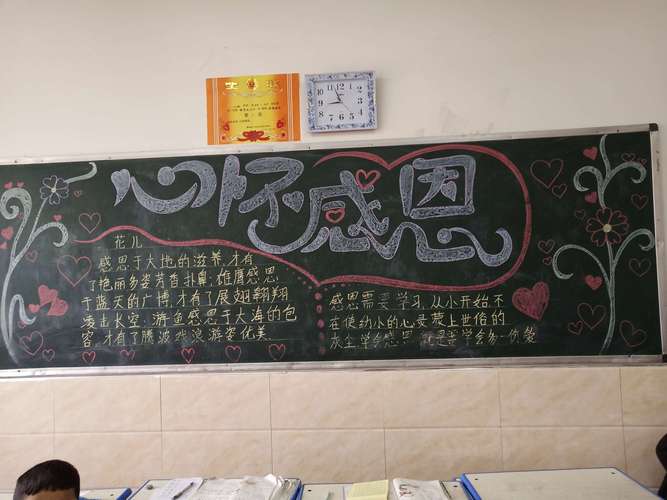 奖状
心怀感恩
花儿
感恩于大地的滋养,才有
了艳丽多姿芳香扑鼻;雄鹰感恩
于蓝天的广博,才有了展翅翱翔
搏击长空;游鱼感恩于大海的包
容,才有了腾波戏浪游姿优美.
感恩需要学习,从小开始不
在使幼小的心灵蒙上世俗的
灰尘学会感恩 就是学会多一份爱
12
1
2
3
4
5
6
7
8
9
10
11